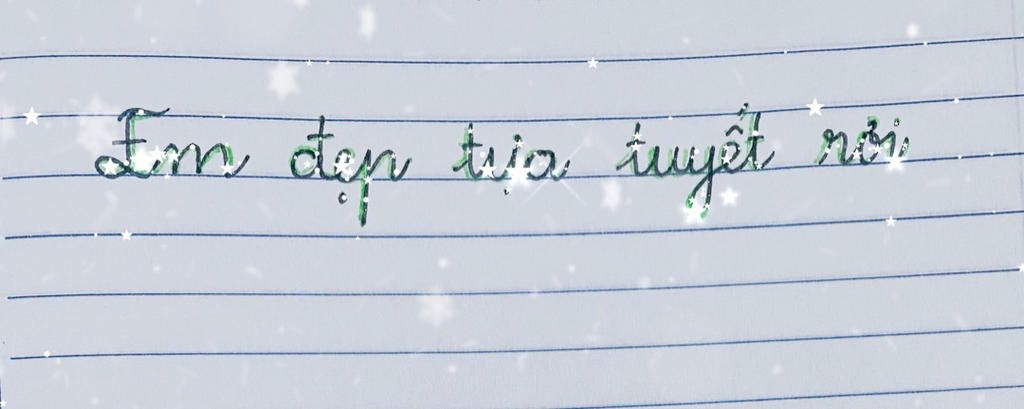 Em đẹp tựa tuyết rơi